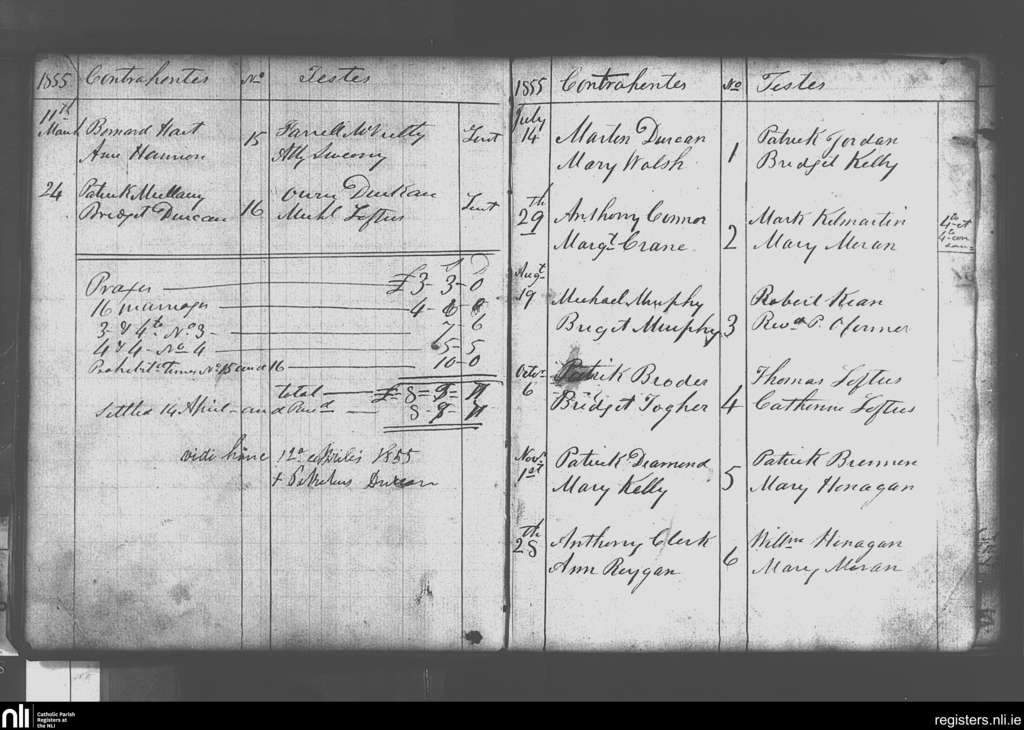 1855 Contrahentes No Testes
11th
March Bernard Hart 15 Farrell McNulty Lent
Ann Hannon Ally Sweeny
24 Patrick Mullany 16 Owen Durkan Lent
Bridget Duncan Michl Loftus
£ S D
£3-3-0
16 marriages 4-
3 & 4to No 3 7-6
4 & 4 No 4 5-5
Prohibitn Times No 15 and 16 10-0
total £ 8=
Settled 14 April and Paid 8-
vidi 12a Aprilis 1855
+ Patritius Duncan
1855 Contrahentes No Testes
July
14 Marten Duncan 1 Patrick Jordan
Mary Walsh Bridget Kelly
th
29 Anthony Connor 2 Mark Kilmartin 4to et
Margt Crane Mary Moran 4to con
Augt
19 Michael Murphy Robert Kean
Briget Murphy 3 Revd P. Oconner
Octor
6 Patrick Broder Thomas Loftus
Bridget Togher 4 Catherine Loftus
Novr
1st Patrick Diamond 5 Patrick Brennen
Mary Kelly Mary Henagan
th
28 Anthony Clerk 6 Willm Henagan
Ann Reygan Mary Moran
nli Catholic Parish
Registers at
the NLI
registers.nli.ie